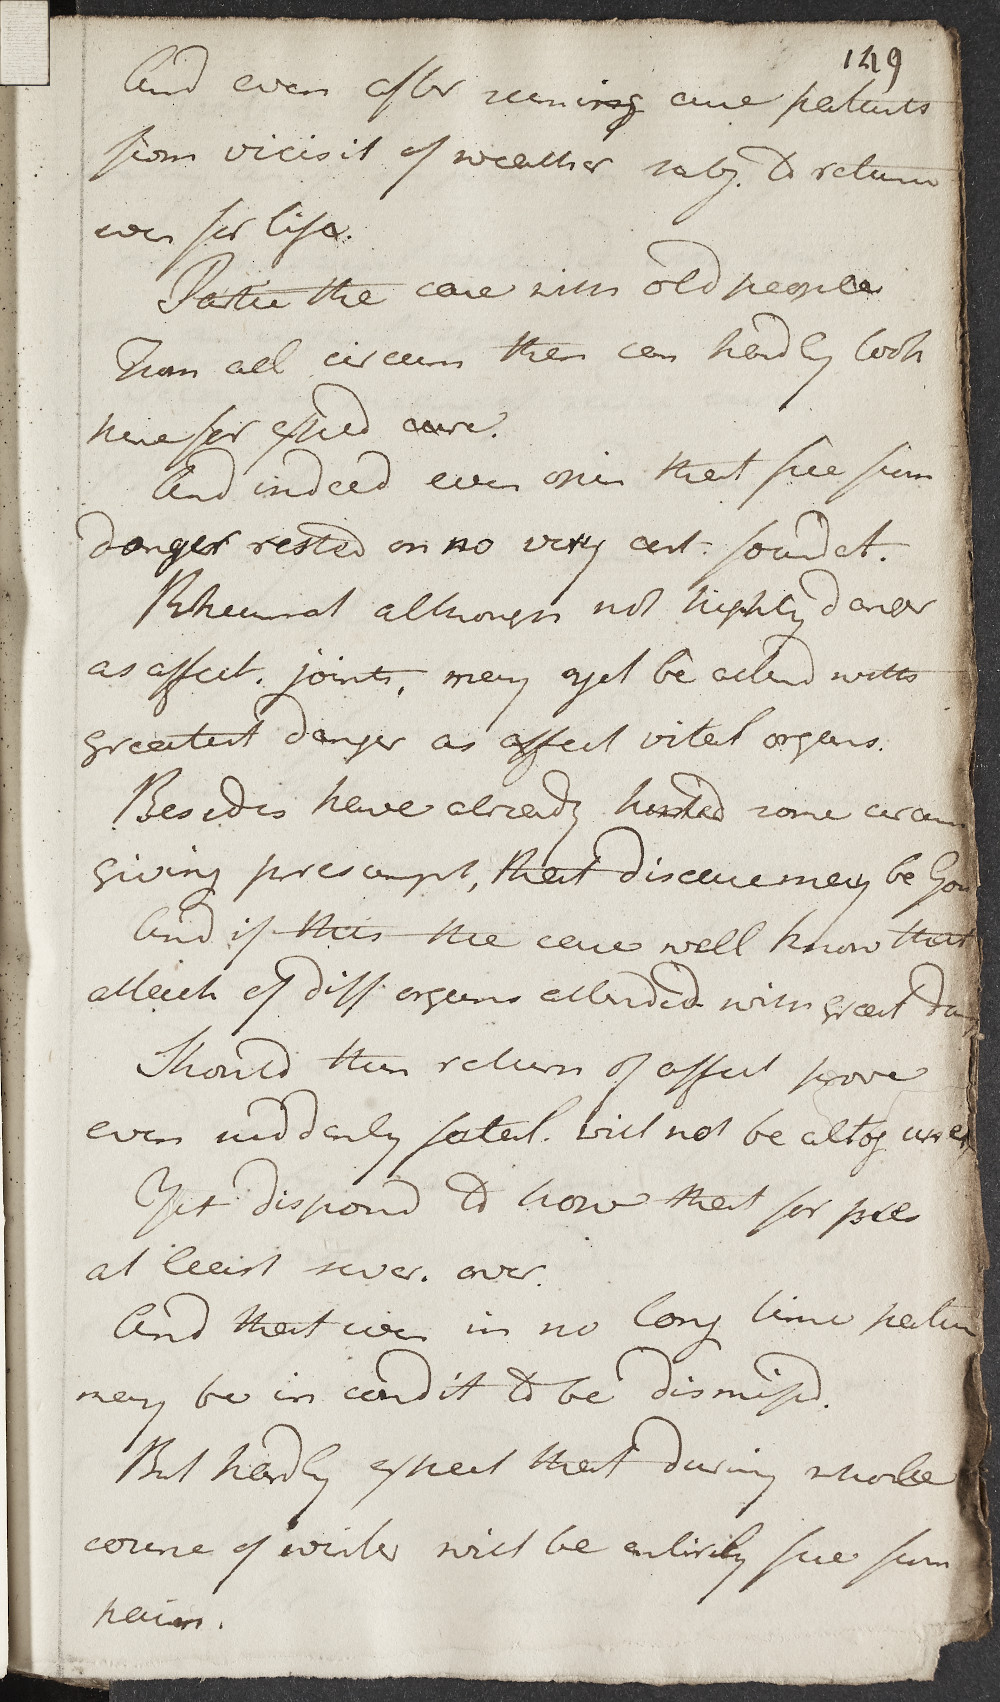 149
And even after seeming cure patients
from vicisit of weather subj. to return
even for life.
Partic the case with old people
From all circum then can hardly look
here for speed cure.
And indeed even opin that free from
danger rested on no very cert. foundat.
Rheumat although not highly danger
as affect. joints, may yet be attend with
greatest danger as affect vital organs.
Besides have already hinted some circum
giving presumpt, that disease may be Gou
And if this the case well know that
attack of diff organs attended with great dan
Should then return of affect prove
even suddenly fatal. will not be altog unex
Yet dispond to hope that for pres
at least sever. over.
And that even in no long time patien
may be in condit to be dismissd.
But hardly expect that during whole
course of winter will be entirely free from
pain.